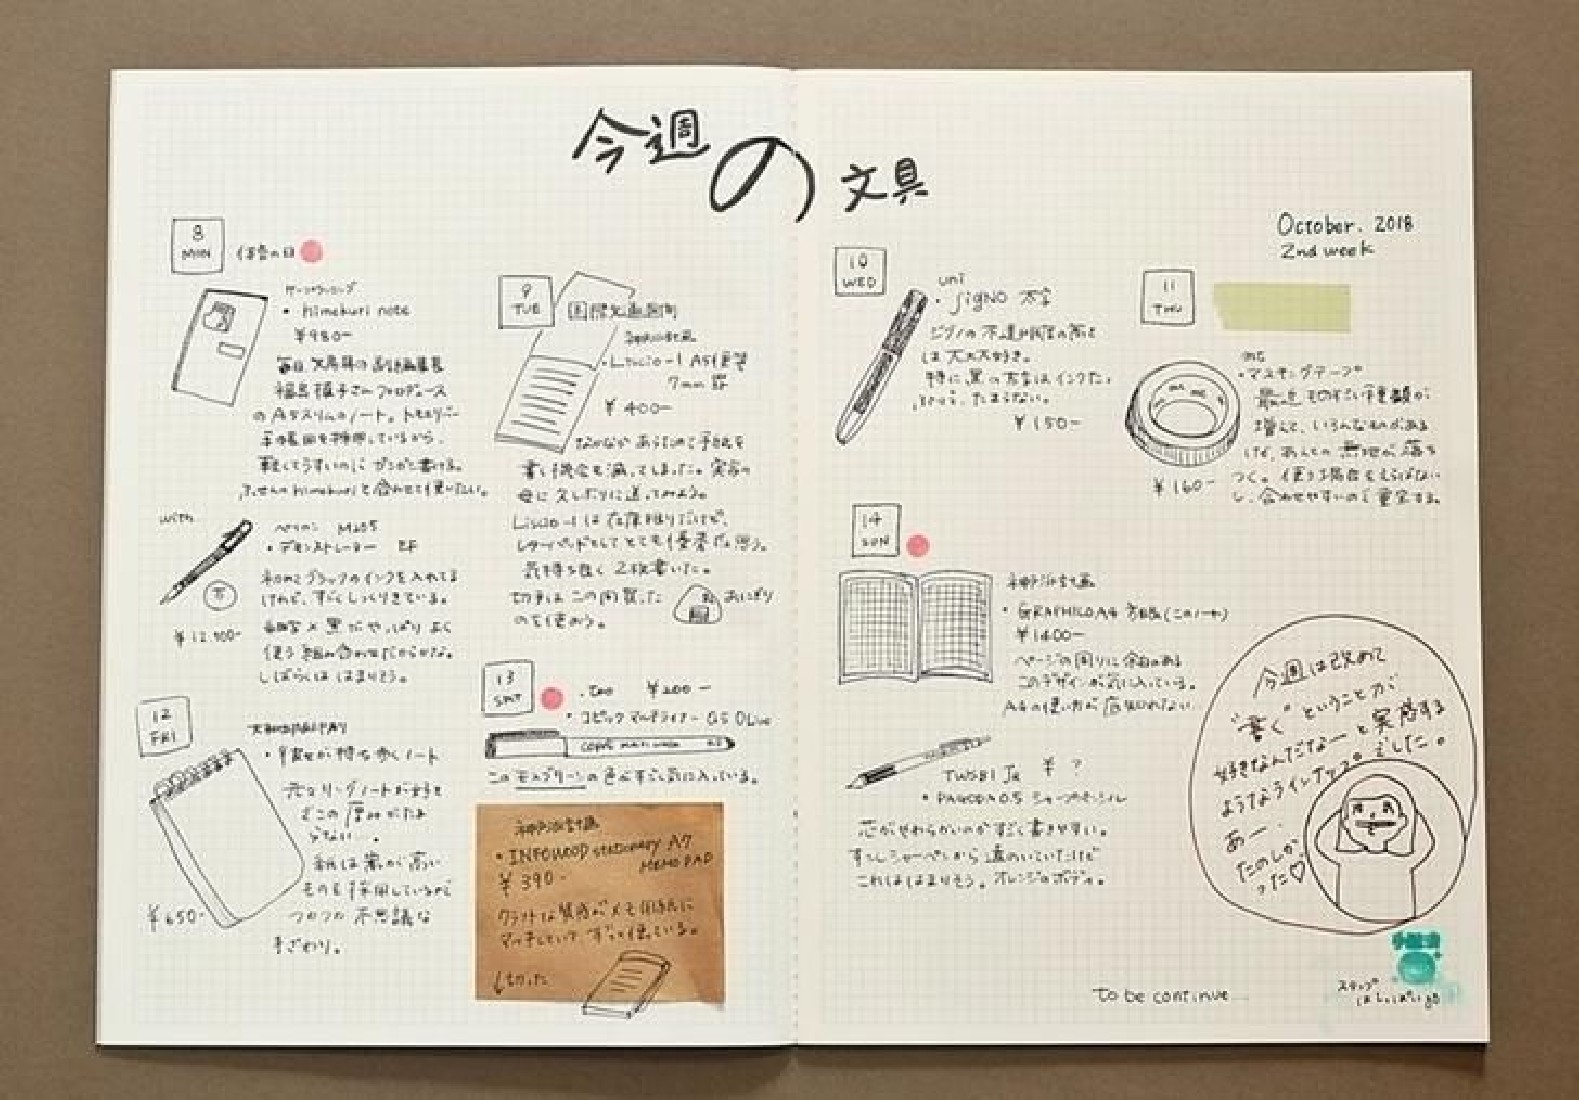 今週の文具
October. 2018
2nd week
8
MON
体育の日
・himekuri note
¥980-
毎日 文房具の
のA5スリムのノート。トモエリバー
手帳用を採用しているから、
軽くてうすいのに ガンガン書ける。
ふせんのhimekuriと合わせて使いたい。
with
ペリカン M205
・デモンストレーター EF
ブラックのインクを入れてる
けれど、すごくしっくりきている。
¥12,500-
細字×黒だやっぱりよく
使う組み合わせだからかな。
しばらくははまりそう。
9
TUE
・Liscio-1 A5便箋
7mm 罫
¥400-
なかなかあらたまって手紙を
書く機会も減ってしまった。実家の
母に久しぶりに送ってみよう。
Liscio-1は在庫限りだけど、
レターパッドとしてとても優秀だと思う。
気持ち良く2枚書いた。
切手はこの間買った
のを使おう。
おにぎり
10
WED
uni
・SigNO 太字
は大大大好き。
特に黒の太字はインクたっ
ぷりで、たまらない。
¥150-
11
THU
mt
・マスキングテープ
最近ものすごい種類が
増えて、いろんなものがある
けど、あんとの無地が落ち
つく。使う場合をえらばない
し、合わせやすいので重宝する。
¥160-
12
FRI
大和出版印刷
・幸せが持ち歩くノート
元々リングノートが好き
でこの厚みがたま
らない...
紙は嵩が高い
ものを採用しているので
つるつる不思議な
手ざわり。
¥650-
13
SAT
・too ¥200-
・コピックマルチライナー 0.5 Olive
このモスグリーンの色がすごく気に入っている。
神戸派計画
・INFOWOOD stationary A7
MEMO PAD
¥390-
クラフトな質感がメモ用紙に
マッチしていて、ずっと使っている。
↓切った
14
SUN
神戸派計画
・GRAPHILO A4 方眼(このノート)
¥1400-
ページの周りに余白のある
このデザインが気に入っている。
A4の使い方が底知れない。
TWSBI Jr ¥?
・PAGODA 0.5 シャープペンシル
芯がやわらかいのがすごく書きやすい。
すこしシャーペンから遠のいていたけど
これははまりそう。オレンジのボディ。
今週は改めて
"書く"ということが
好きなんだなーと実感する
ようなラインナップでした。
あー.
たのしか
った♡
To be continue
スタンプ
はしっぱい